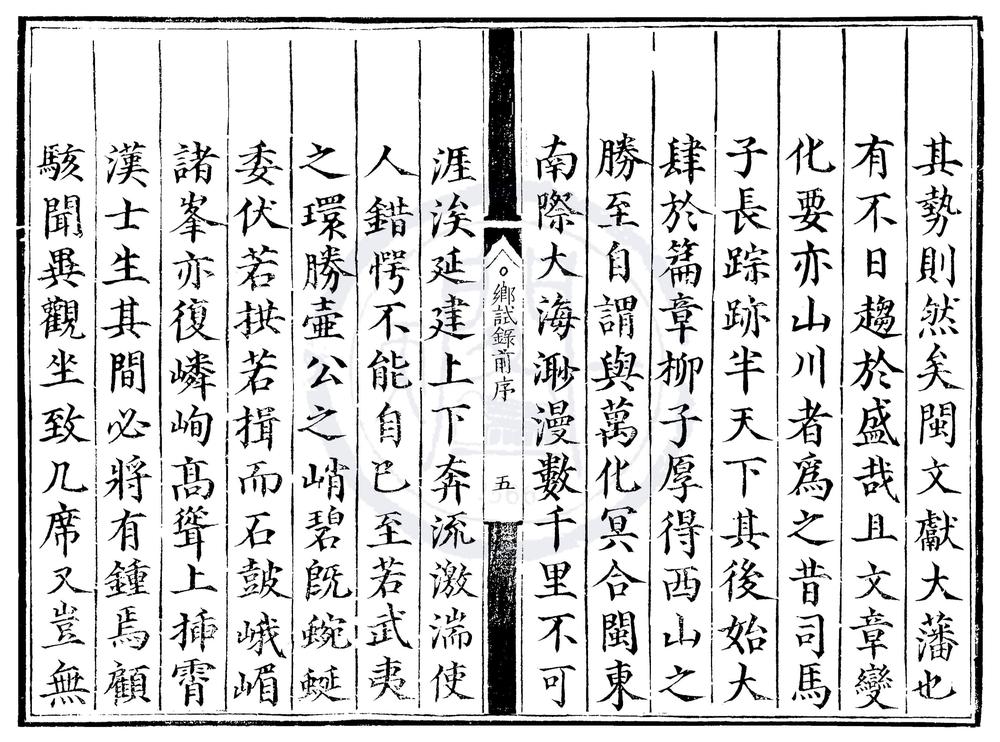 其勢則然矣閩文獻大藩也
有不日趨於盛哉且文章變
化要亦山川者爲之昔司馬
子長踪跡半天下其後始大
肆於篇章柳子厚得西山之
勝至自謂與萬化冥合閩東
南際大海渺漫數千里不可
鄉試錄前序
五
涯涘延建上下奔流激湍使
人錯愕不能自已至若武夷
之環勝壷公之峭碧旣蜿蜒
委伏若拱若揖而石鼓峨嵋
諸峯亦復嶙峋髙聳上揷霄
漢士生其間必將有鍾焉顧
駭聞異觀坐致几席又豈無